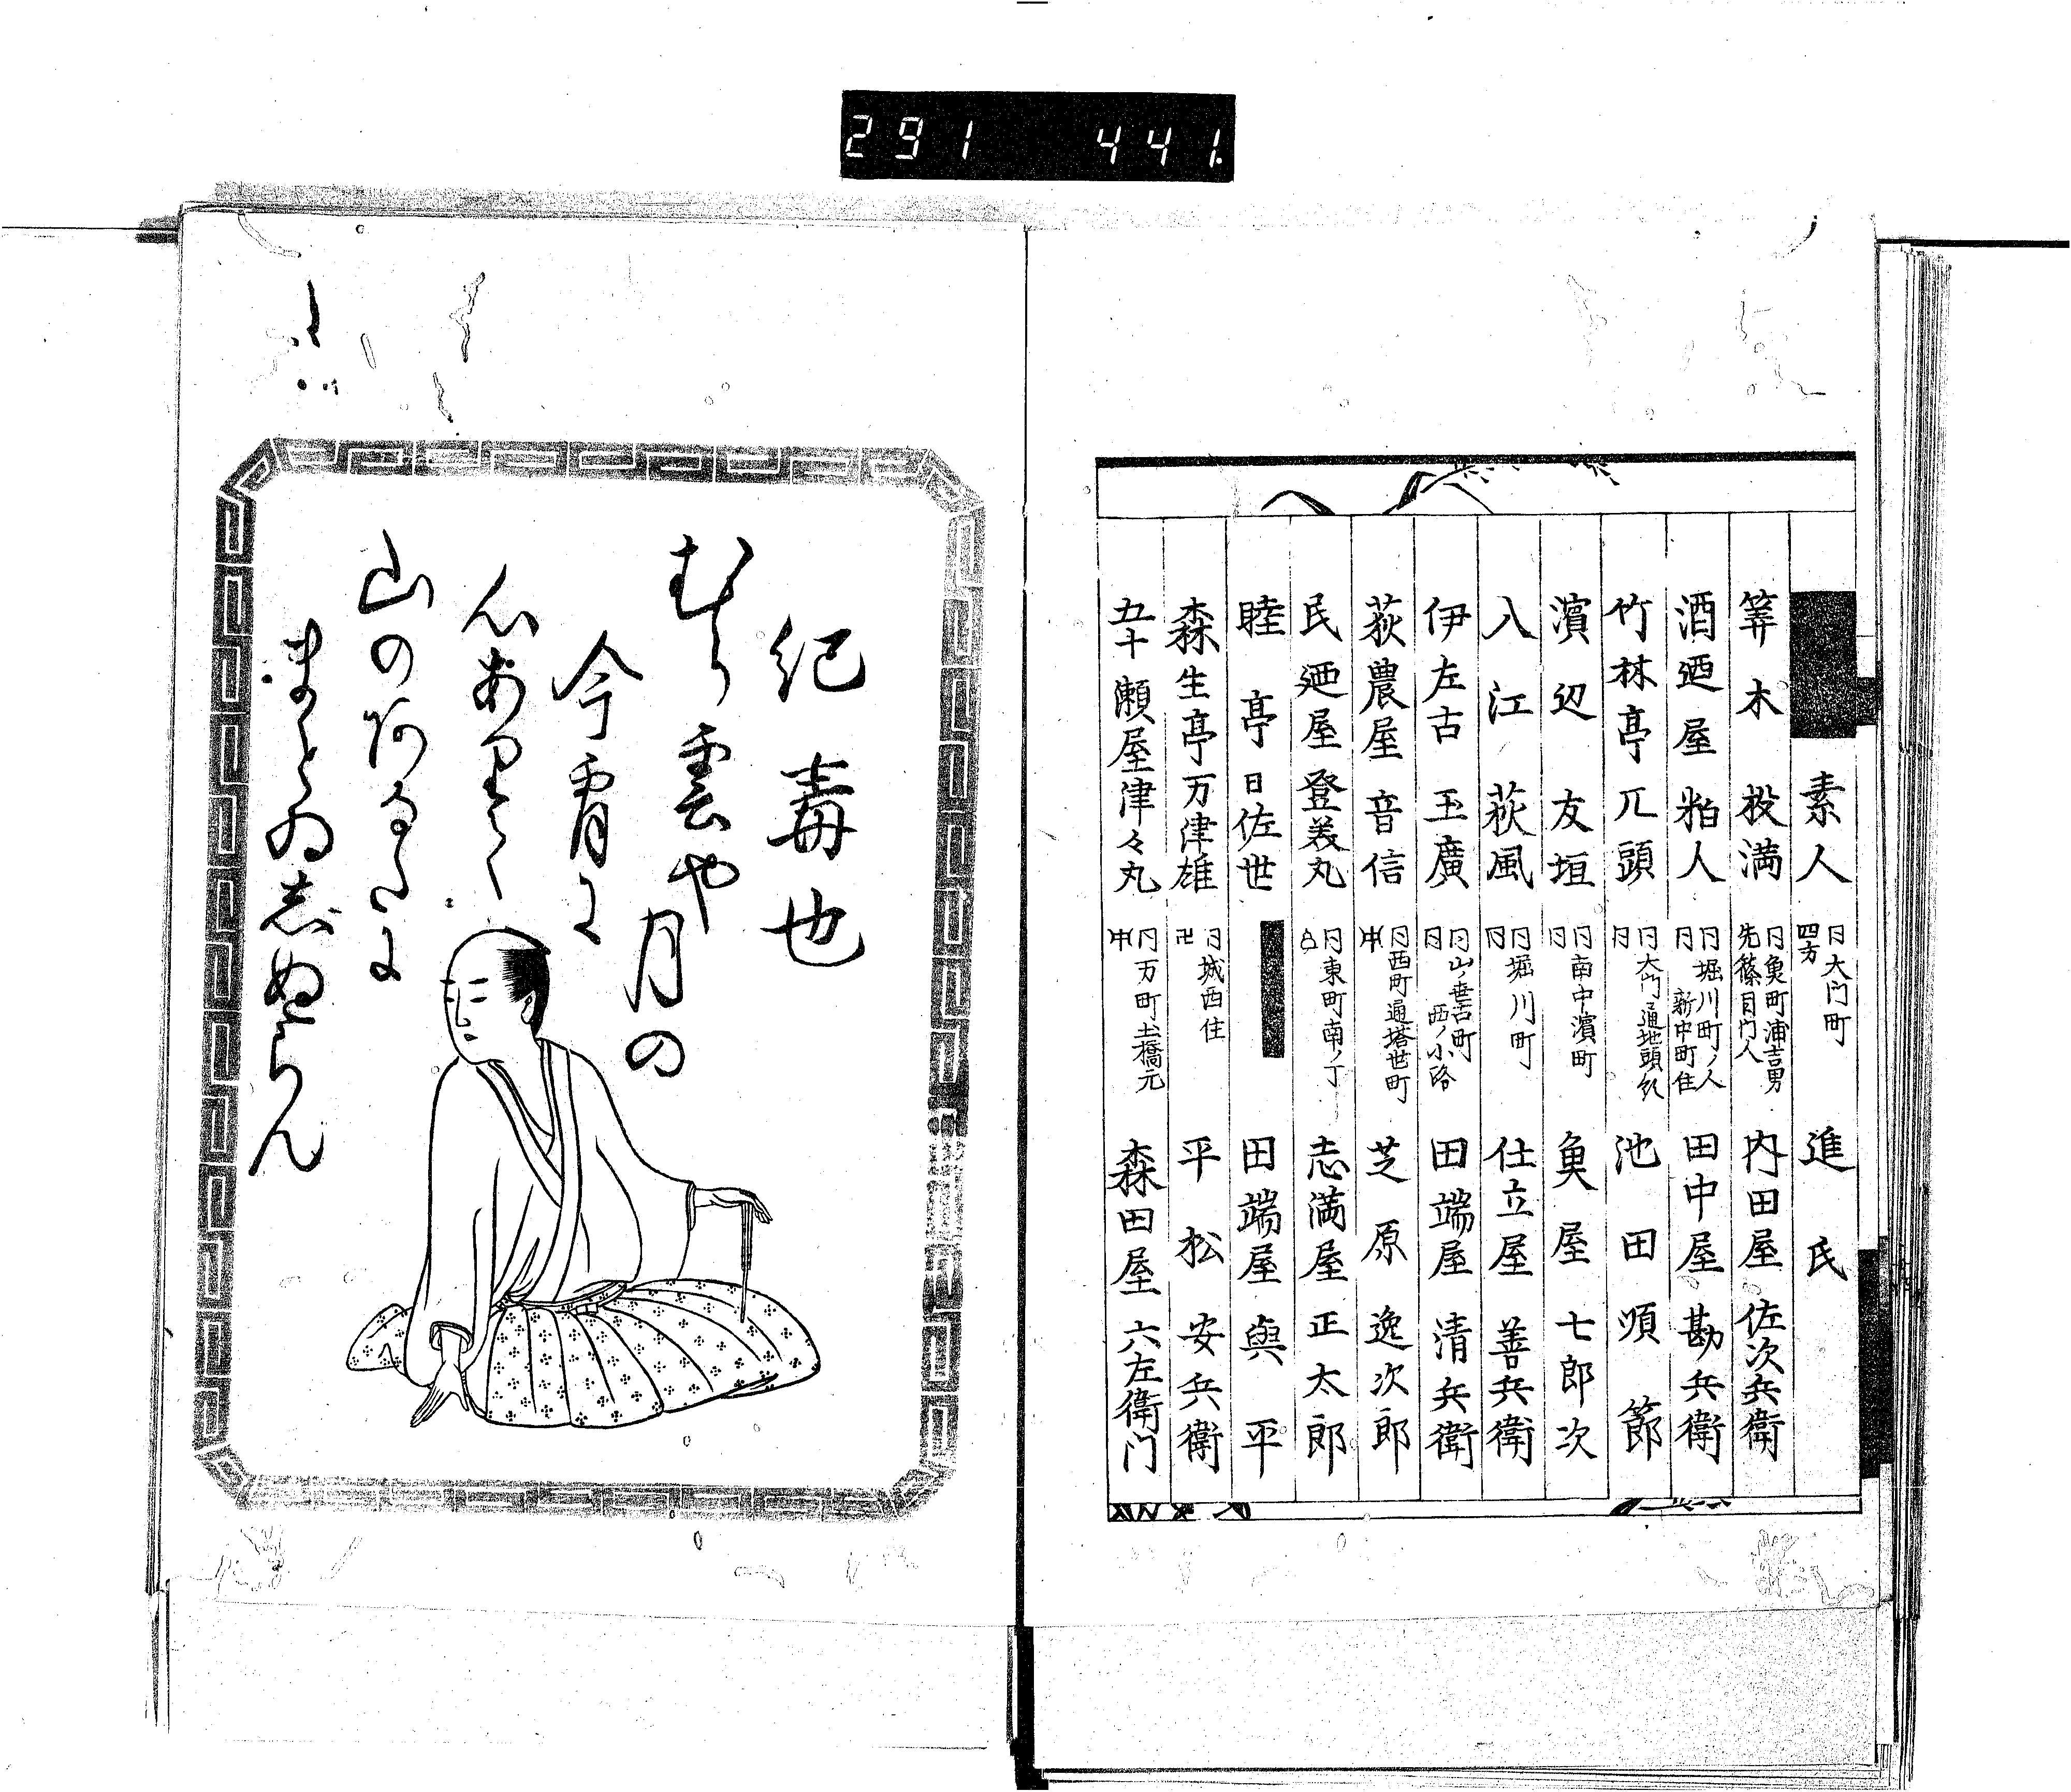 291 441
素人 四方 仝大门町 進氏
筭木投満 仝魚町浦吉男 先篠目门人 内田屋佐次兵衛
酒廼屋粕人 仝堀川町ノ人 新中町住 田中屋勘兵衛
竹林亭兀頭 仝大门通地頭 池田順節
濱辺友垣 仝南中濱町 魚屋七郎次
入江萩風 仝堀川町 仕立屋善兵衛
伊左古玉廣 仝山ノ垂古町 西ノ小路 田端屋清兵衛
荻農屋音信 仝西町通塔世町 芝原逸次郎
民廼屋登美丸 仝東町南ノ丁 志満屋正太郎
睦亭日佐世 田端屋與平
森生亭万津雄 卍 仝城西住 平松安兵衛
五十瀬屋津々丸 仝万町土橋元 森田屋六左衛门
紀毒也
むら雲や
月の
今宵に
心ありて
山のあなたに
まとゐしぬらん